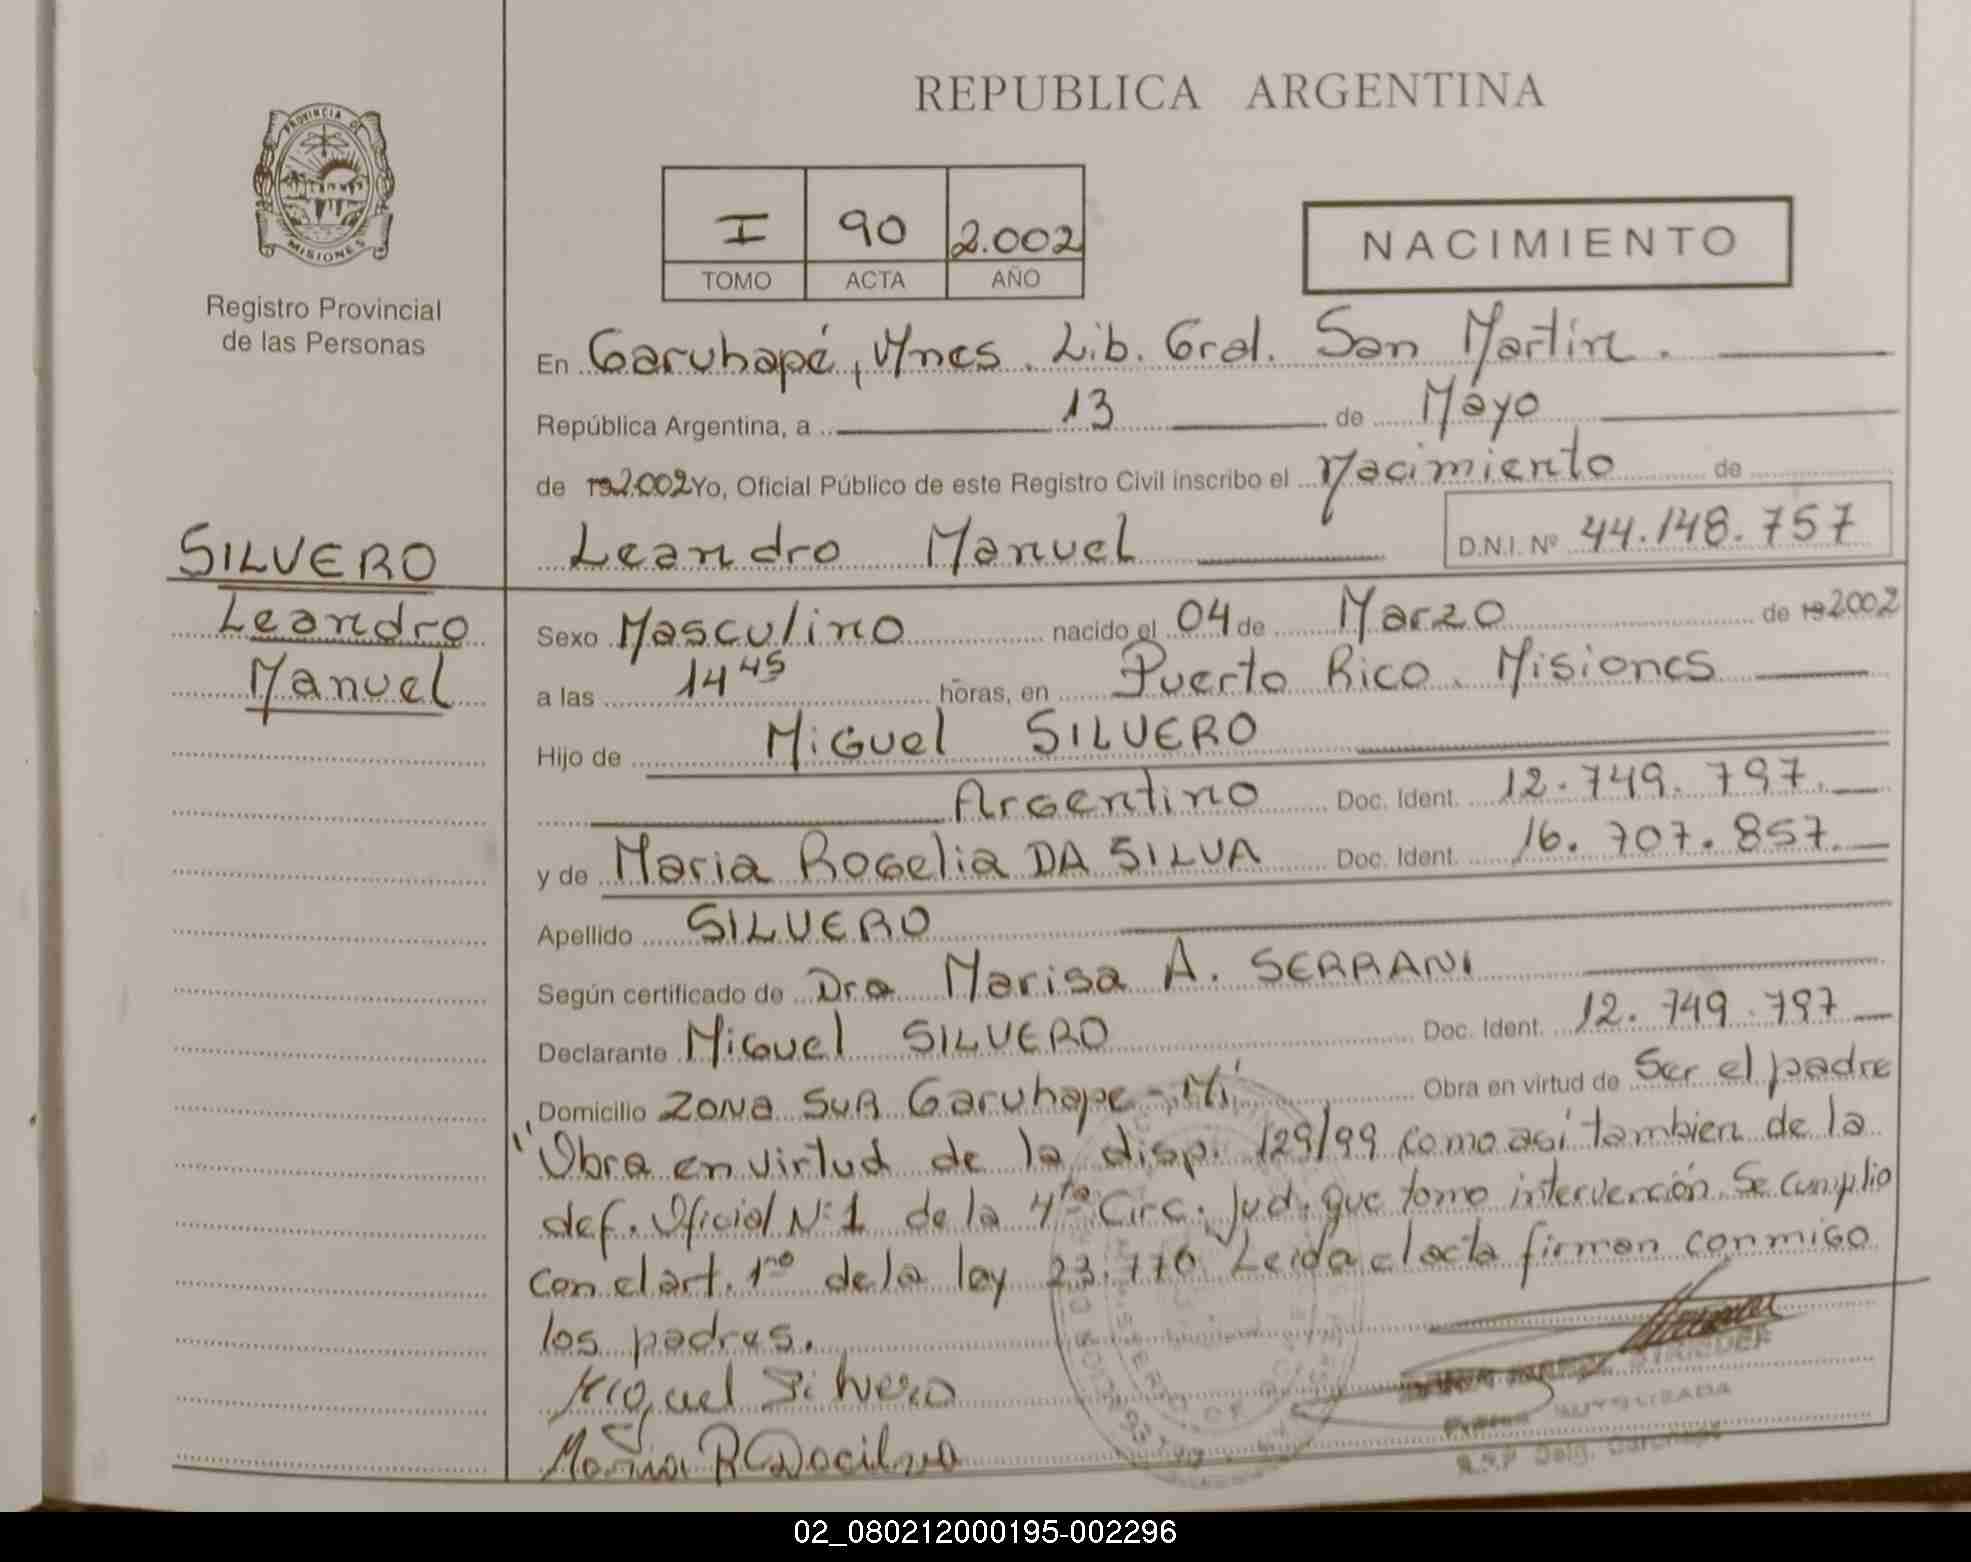 REPUBLICA ARGENTINA
PROVINCIA DE
MISIONES
Registro Provincial
de las Personas
I 90 2.002
TOMO ACTA AÑO
NACIMIENTO
En Garuhapé, Mnes. Lib. Gral. San Martin.
República Argentina, a 13 de Mayo
de 192.002 Yo, Oficial Público de este Registro Civil inscribo el Nacimiento de
Leandro Manuel D.N.I. Nº 44.148.757
SILVERO
Leandro
Manuel
Sexo Masculino nacido el 04 de Marzo de 192002
a las 14 45 horas, en Puerto Rico. Misiones
Hijo de Miguel SILVERO
Argentino Doc. Ident. 12.749.797.
y de Maria Rogelia DA SILVA Doc. Ident. 16.707.857.
Apellido SILVERO
Según certificado de Dra Marisa A. SERRANI
Declarante Miguel SILVERO Doc. Ident. 12.749.797
Domicilio ZONA SUR Garuhape - Mi Obra en virtud de Ser el padre
"Obra en virtud de la disp. 129/99 como asi tambien de la
def. Oficial Nº 1 de la 4ta Circ. Jud. que tomo intervención. Se cumplio
con el art. 1ro de la ley 23.776 Leida el acta firman conmigo
los padres.
Miguel Silvero
Maria R Dacilva
STRIEDER
AUTORIZADA
R.S.P Delg. Garuhape
02_080212000195-002296